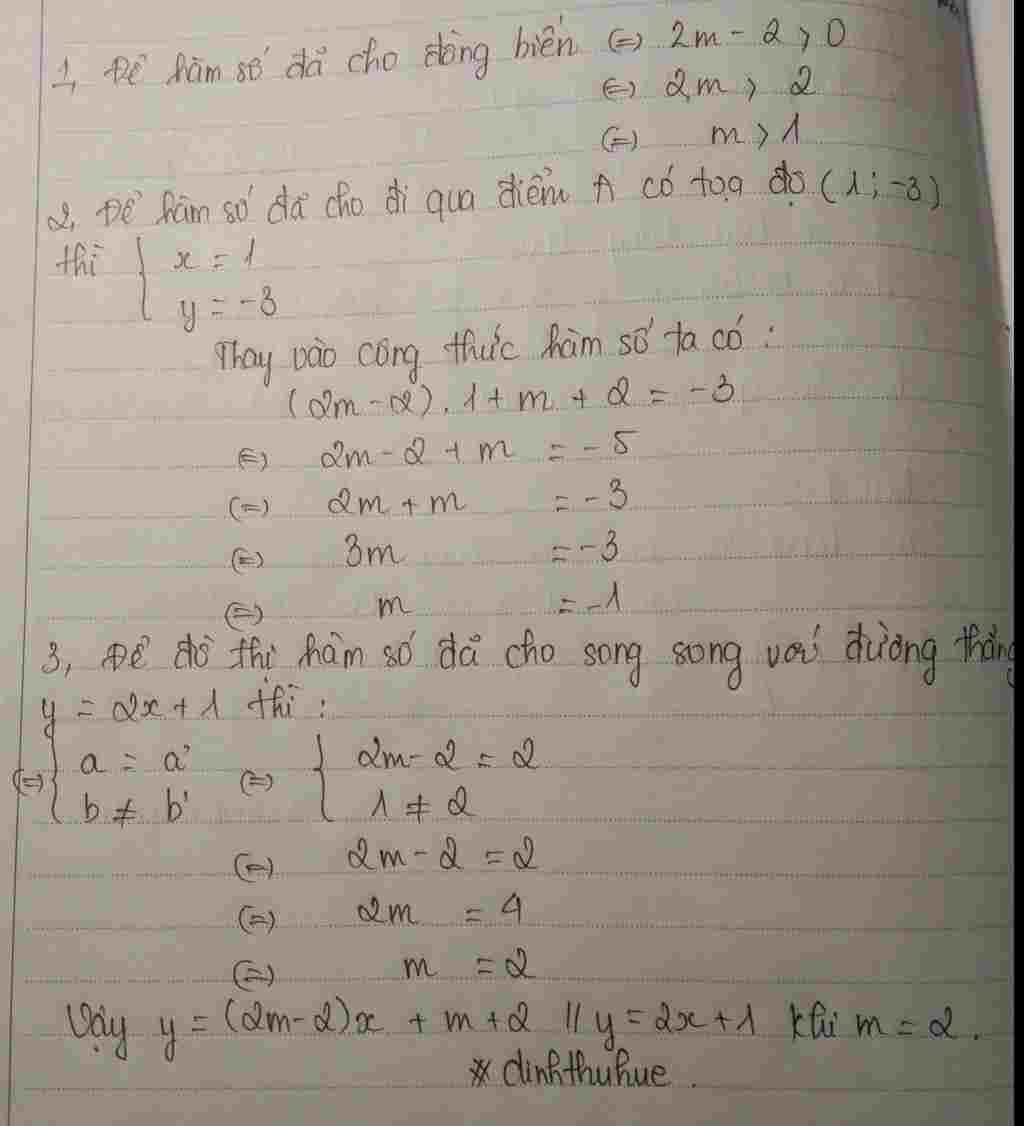 1, Để hàm số đã cho đồng biến (=) 2m - 2 > 0
(=) 2m > 2
(=) m > 1
2, Để hàm số đã cho đi qua điểm A có toạ độ (1; -3)
thì { x = 1
y = -3
Thay vào công thức hàm số ta có :
(2m - 2) . 1 + m + 2 = -3
(=) 2m - 2 + m = -5
(=) 2m + m = -3
(=) 3m = -3
(=) m = -1
3, Để đồ thị hàm số đã cho song song với đường thẳng
y = 2x + 1 thì :
(=) { a = a' (=) { 2m - 2 = 2
b ≠ b' 1 ≠ 2
(=) 2m - 2 = 2
(=) 2m = 4
(=) m = 2
Vậy y = (2m - 2)x + m + 2 // y = 2x + 1 khi m = 2 .
* dinhthuhue .